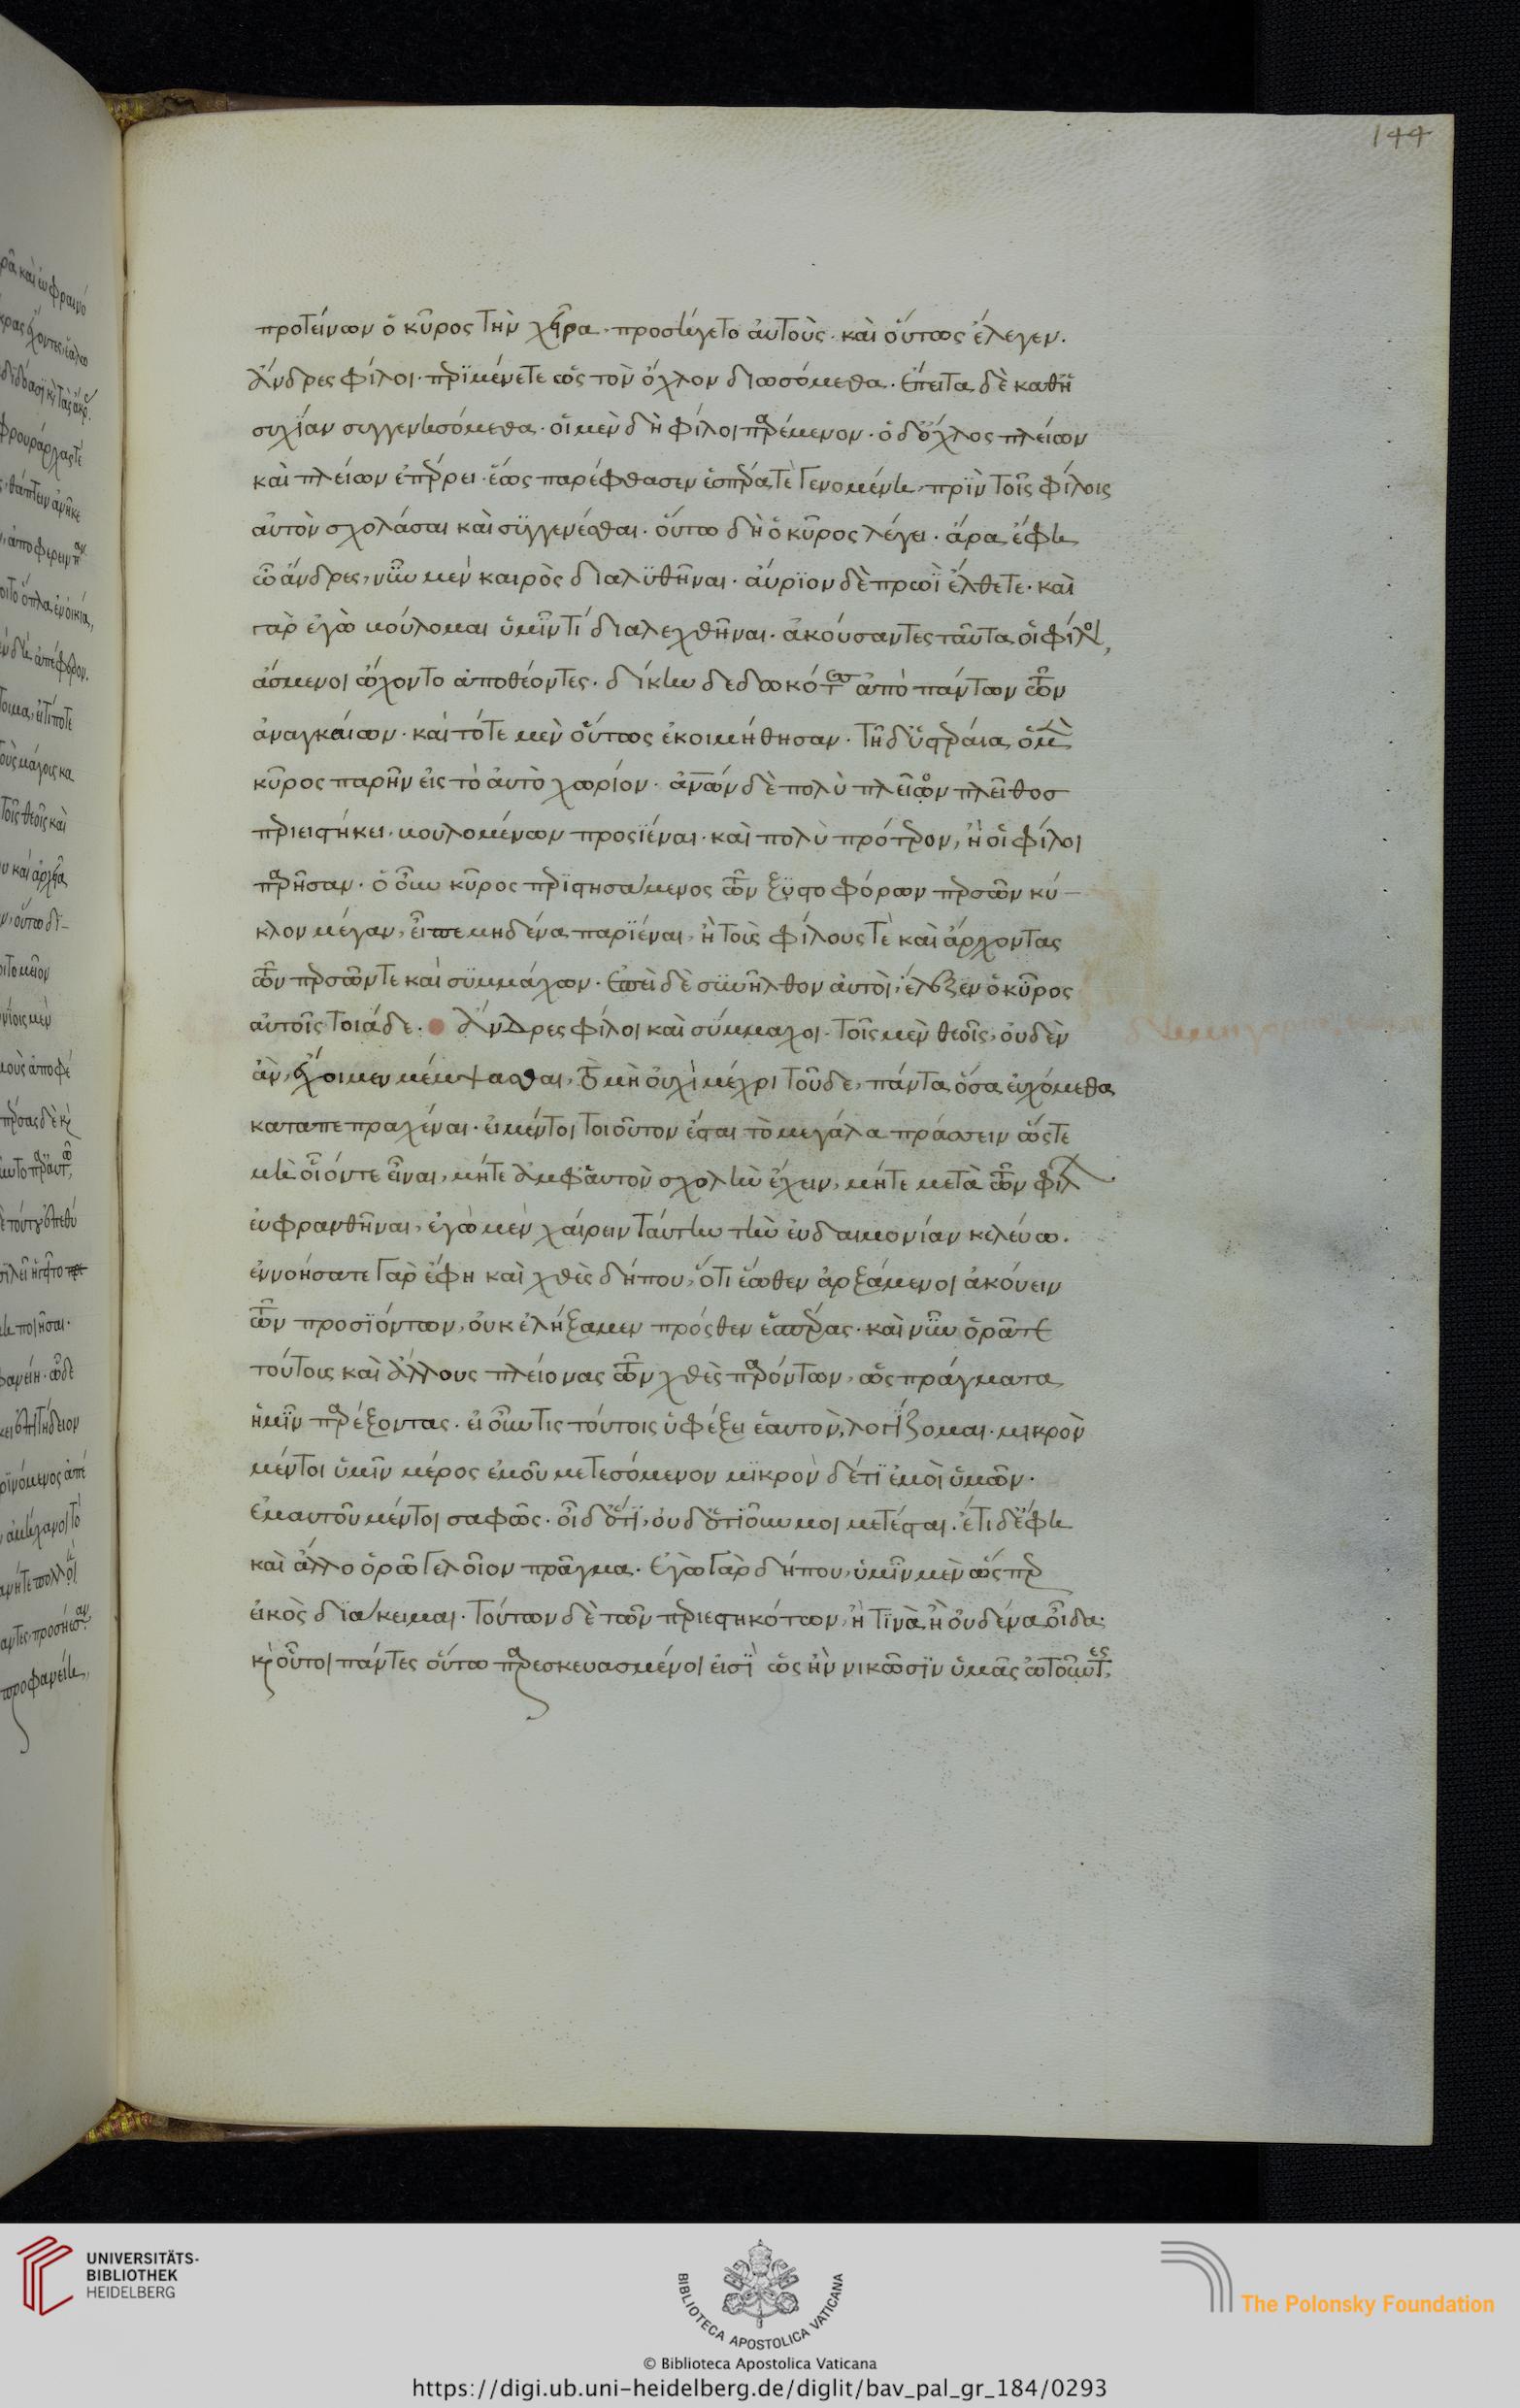 144
προτείνων ὁ κῦρος τὴν χεῖρα· προσήγετο αὐτοὺς· καὶ οὕτως ἔλεγεν.
Ἄνδρες φίλοι· περϊμένετε ὡς τὸν ὄχλον διωσόμεθα. Ἔπειτα δὲ καθἡ
συχίαν συγγενησόμεθα· οἱ μὲν δὴ φίλοι περιέμενον· ὁ δ ὄχλος πλείων
καὶ πλείων ἐπέρρει· ἕως παρέφθασεν ἑσπέρα τὲ γενομένη, πρὶν τοῖς φίλοις
αὐτὸν σχολάσαι καὶ σϋγγενέσθαι. οὕτω δὴ ὁ κῦρος λέγει. ἆρα ἔφη
ὦ ἄνδρες, νῦν μὲν καιρὸς διαλϋθῆναι· αὔρϊον δὲ πρωῒ ἔλθετε· καὶ
γὰρ ἐγὼ βούλομαι ὑμῖν τί διαλεχθῆναι. ἀκούσαντες ταῦτα οἱ φίλοι,
ἄσμενοι ὤχοντο ἀποθέοντες. δίκην δεδωκότων ἀπὸ πάντων τῶν
ἀναγκαίων· καὶ τότε μὲν οὕτως ἐκοιμήθησαν. τῆ δ ὑστεραία ὁ μὲν
κῦρος παρῆν εἰς τὸ ἀυτὸ χωρίον. ἀνων δὲ πολὺ πλεῖον πλεῖθοσ
περιειστήκει· βουλομένων προσϊέναι· καὶ πολὺ πρότερον, ἢ οἱ φίλοι
παρῆσαν. ὁ οὖν κῦρος περϊστησάμενος τῶν ξϋστοφόρων περσῶν κύ–
κλον μέγαν, εἶπε μηδένα παρϊέναι, ἢ τοὺς φίλους τὲ καὶ ἄρχοντας
τῶν περσῶν τε καὶ σϋμμάχων. Ἐπεὶ δὲ σϋνῆλθον αὐτοὶ, ἔλεξεν ὁ κῦρος
αὐτοῖς τοιάδε. Ἄνδρες φίλοι καὶ σύμμαχοι. τοῖς μὲν θεοῖς, οὐδὲν
ἂν ἔχοιμεν μέμψασθαι, τὸ μὴ οὐχὶ μέχρι τοῦδε, πάντα ὅσα εὐχόμεθα
καταπεπραχέναι. εἰ μέντοι τοιοῦτον ἔσται τὸ μεγάλα πράσσειν ὥςτε
μὴ οἷόντε εἶναι, μήτε ἀμφ αὑτὸν σχολὴν ἔχειν, μήτε μετὰ τῶν φίλων
εὐφρανθῆναι, ἐγὼ μὲν χαίρειν ταύτην τὴν εὐδαιμονίαν κελεύω.
ἐννοήσατε γὰρ ἔφη καὶ χθὲς δήπου, ὅτι ἕωθεν ἀρξάμενοι ἀκούειν
τῶν προσϊόντων, οὐκ ἐλήξαμεν πρόςθεν ἑσπέρας. καὶ νῦν ὁρᾶτε
τούτοις καὶ ἄλλους πλείονας τῶν χθὲς παρόντων, ὡς πράγματα
ἡμῖν παρέξοντας. εἰ οὖν τις τούτοις ὑφέξει ἑαυτὸν, λογΐζομαι· μικρὸν
μέντοι ὑμῖν μέρος ἐμοῦ μετεσόμενον μϊκρὸν δέ τϊ ἐμοὶ ὑμῶν.
ἐμαυτοῦ μέντοι σαφῶς. οἶδ ὅτϊ, οὐδ ὁτιοῦν μοι μετέσται. ἔτι δ ἔφη
καὶ ἄλλο ὁρῶ γελοῖον πρᾶγμα. Ἐγὼ γὰρ δήπου, ὑμῖν μὲν ὥςπερ
εἰκὸς διάκειμαι. τούτων δὲ τῶν περιεστηκότων, ἢ τϊνὰ ἢ οὐδένα οἶδα·
καὶ οὗτοι πάντες οὕτω παρεσκευασμένοι εἰσϊ ὡς ἢν νικῶσϊν ὑμᾶς
UNIVERSITÄTS-
BIBLIOTHEK
HEIDELBERG
BIBLIOTECA APOSTOLICA VATICANA
The Polonsky Foundation
© Biblioteca Apostolica Vaticana
https://digi.ub.uni-heidelberg.de/diglit/bav_pal_gr_184/0293